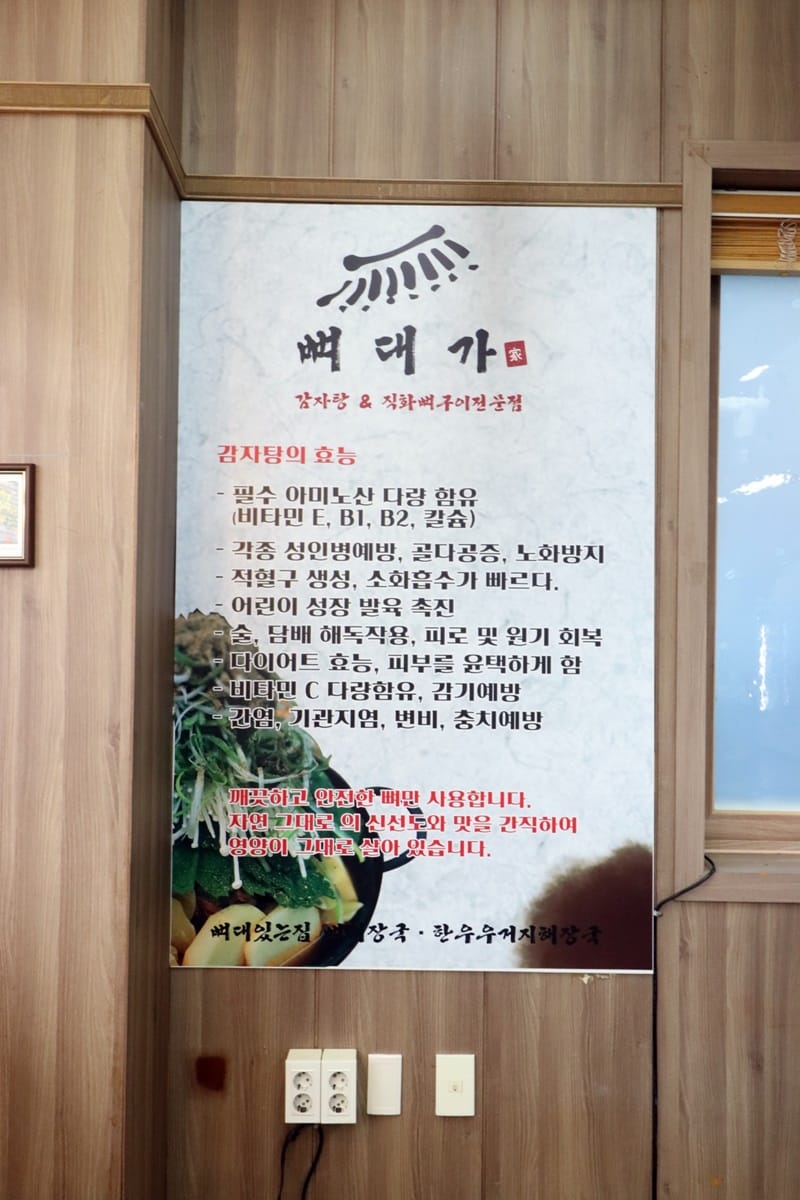 뼈대가 家
감자탕 & 직화뼈구이전문점
감자탕의 효능
- 필수 아미노산 다량 함유
(비타민 E, B1, B2, 칼슘)
- 각종 성인병예방, 골다공증, 노화방지
- 적혈구 생성, 소화흡수가 빠르다.
- 어린이 성장 발육 촉진
- 술, 담배 해독작용, 피로 및 원기 회복
- 다이어트 효능, 피부를 윤택하게 함
- 비타민 C 다량함유, 감기예방
- 간염, 기관지염, 변비, 충치예방
깨끗하고 안전한 뼈만 사용합니다.
자연 그대로 의 신선도와 맛을 간직하여
영양이 그대로 살아 있습니다.
뼈대있는집 뼈해장국 · 한우우거지해장국